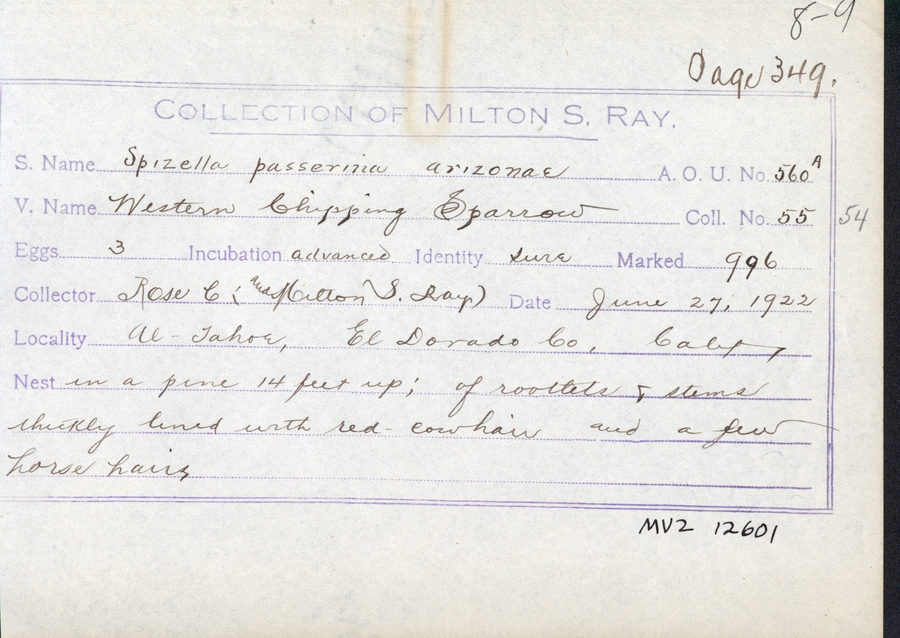 8-9
Page 349.
COLLECTION OF MILTON S. RAY.
S. Name Spizella passerina arizonae A. O. U. No. 560A
V. Name Western Chipping Sparrow Coll. No. 55 54
Eggs 3 Incubation advanced Identity sure Marked 996
Collector Rose C (and Milton S. Ray) Date June 27, 1922
Locality Al-Tahoe, El Dorado Co, Calif,
Nest in a pine 14 feet up; of roottets & stems
thickly lined with red-cowhair and a few
horse hairs
MVZ 12601